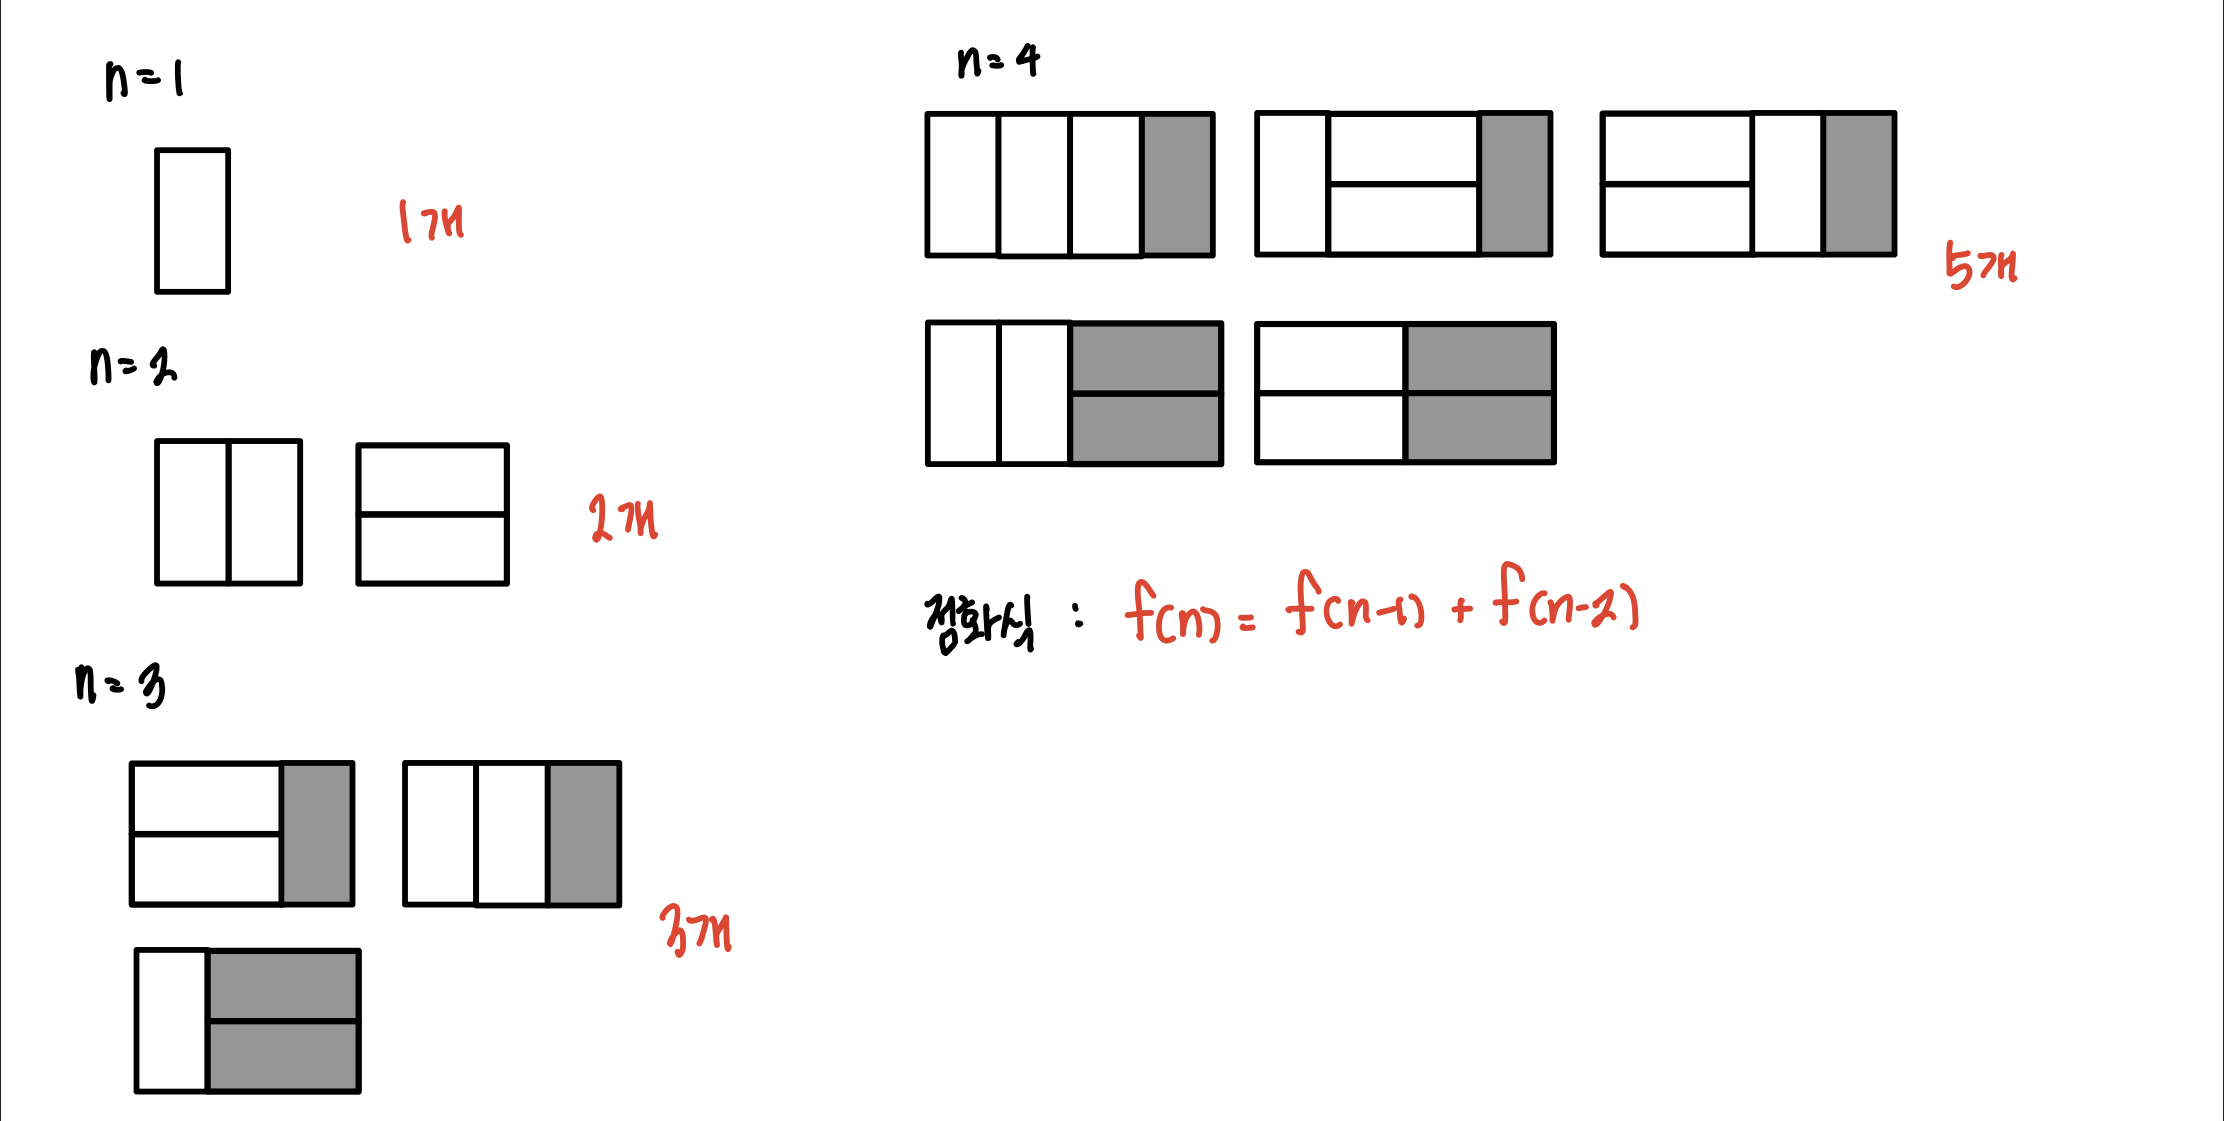 n=1
1개
n=2
2개
n=3
3개
n=4
5개
점화식 : f(n) = f(n-1) + f(n-2)